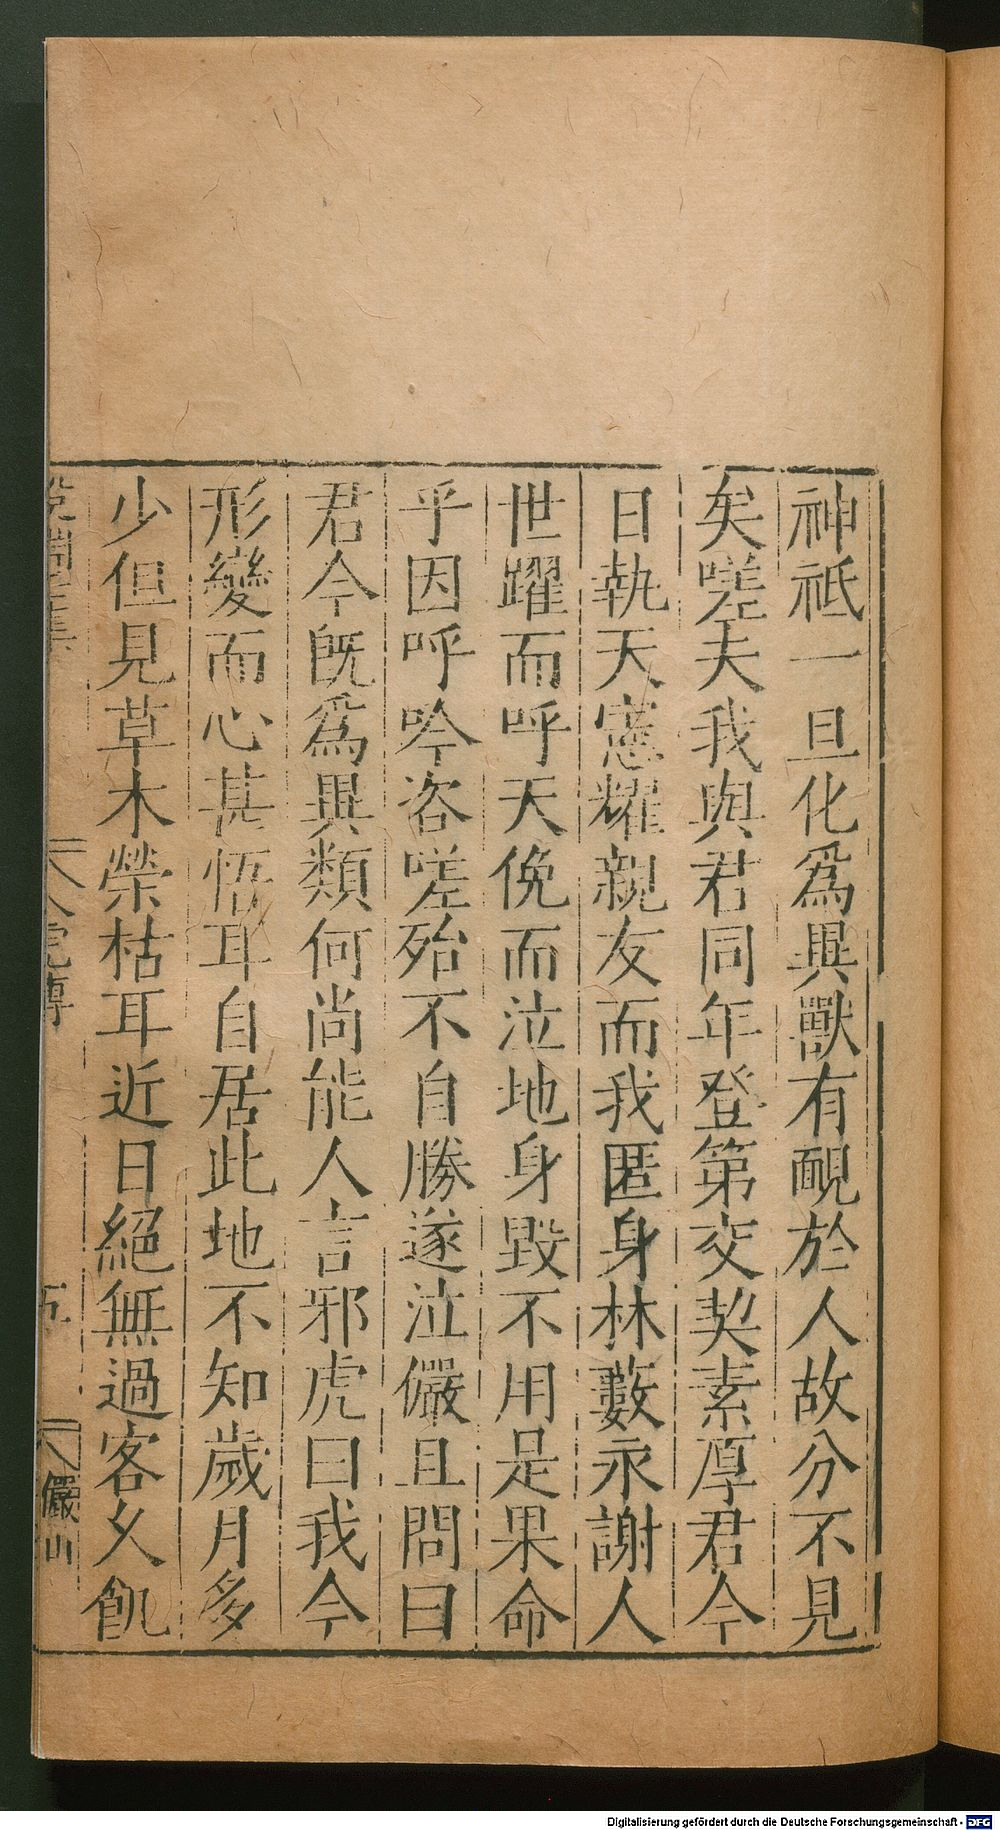 神祗一旦化爲異獸有靦於人故分不見
矣嗟夫我與君同年登第交契素厚君今
日執天憲耀親友而我匿身林藪永謝人
世躍而呼天俛而泣地身毀不用是果命
乎因呼吟咨嗟殆不自勝遂泣儼且問曰
君今旣爲異類何尚能人言邪虎曰我今
形變而心甚悟耳自居此地不知歲月多
少但見草木榮枯耳近日絕無過客久飢
人虎傳
五
儼山
Digitalisierung gefördert durch die Deutsche Forschungsgemeinschaft - DFG